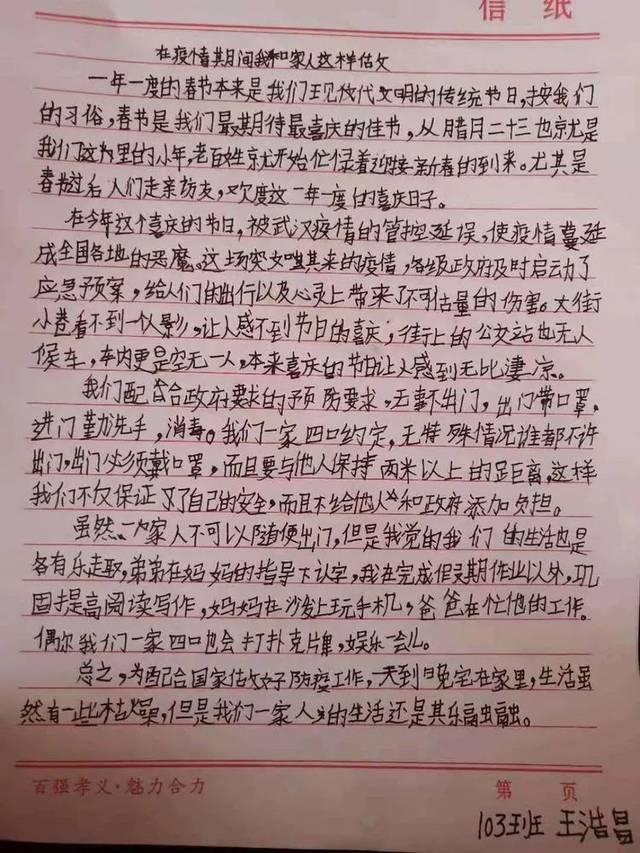 信纸
在疫情其月间我和家人这样做
一年一度的春节本来是我们现代文明的传统节日,按我们
的习俗,春节是我们最期待最喜庆的佳节,从腊月二十三也就是
我们这里的小年,老百姓就开始忙绿着迎接新春的到来。尤其是
春节过后人们走亲访友,欢度这一年一度的喜庆日子。
在今年这个喜庆的节日,被武汉疫情的管控延误,使疫情蔓延
成全国各地的恶魔。这场突如其来的疫情,各级政府及时启动了
应急预案,给人们的出行以及心灵上带来了不可估量的伤害。大街
小巷看不到一个人影,让人感不到节日的喜庆,街上的公交站也无人
候车,车内更是空无一人,本来喜庆的节日让人感到无比凄凉。
我们配合政府要求的预防要求,无事不出门,出门带口罩,
进门勤洗手,消毒。我们一家四口约定,无特殊情况谁都不许
出门,出门必须戴口罩,而且要与他人保持两米以上的距离,这样
我们不仅保证了自己的安全,而且不给他人和政府添加负担。
虽然一家人不可以随便出门,但是我觉的我们的生活也是
各有乐趣,弟弟在妈妈的指导下认字,我在完成假期作业以外,巩
固提高阅读写作,妈妈在沙发上玩手机,爸爸在忙他的工作。
偶尔我们一家四口也会打扑克牌,娱乐一会儿。
总之,为配合国家做好防疫工作,一天到晚宅在家里,生活虽
然有一些枯燥,但是我们一家人的生活还是其乐融融。
百强孝义·魅力合力 第 页
103班 王浩昌